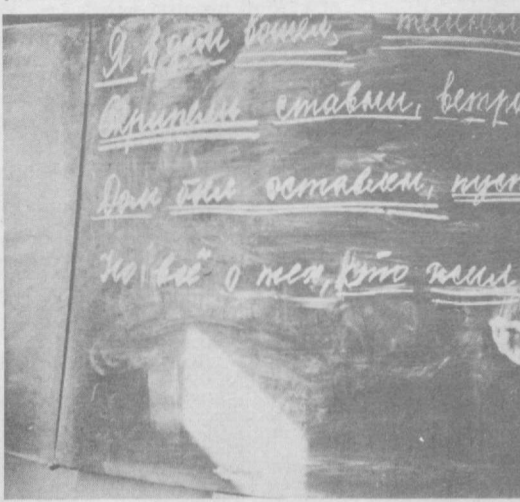 Я в дом вошёл, темнело
Скрипели ставни, ветро
Дом был оставлен, пуст
Но всё о тех, кто жил